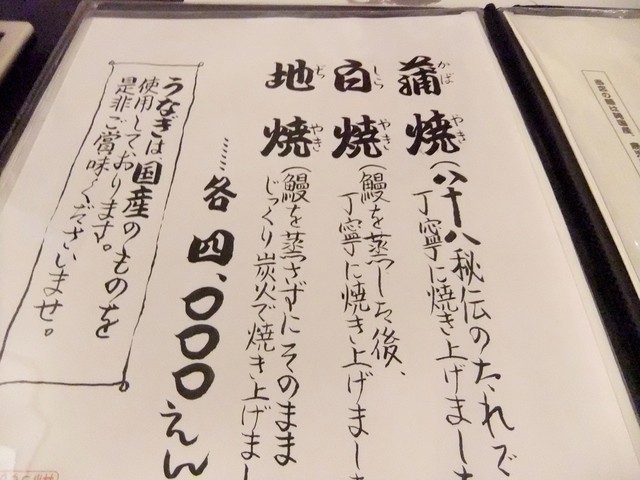 蒲焼
かば やき
(八十八秘伝のたれで
丁寧に焼き上げました
白焼
しら やき
(鰻を蒸した後、
丁寧に焼き上げました
地焼
ぢ やき
(鰻を蒸さずにそのまま
じっくり炭火で焼き上げまし
……各四、〇〇〇えん
うなぎは、国産のものを
使用しております。
是非ご賞味くださいませ。